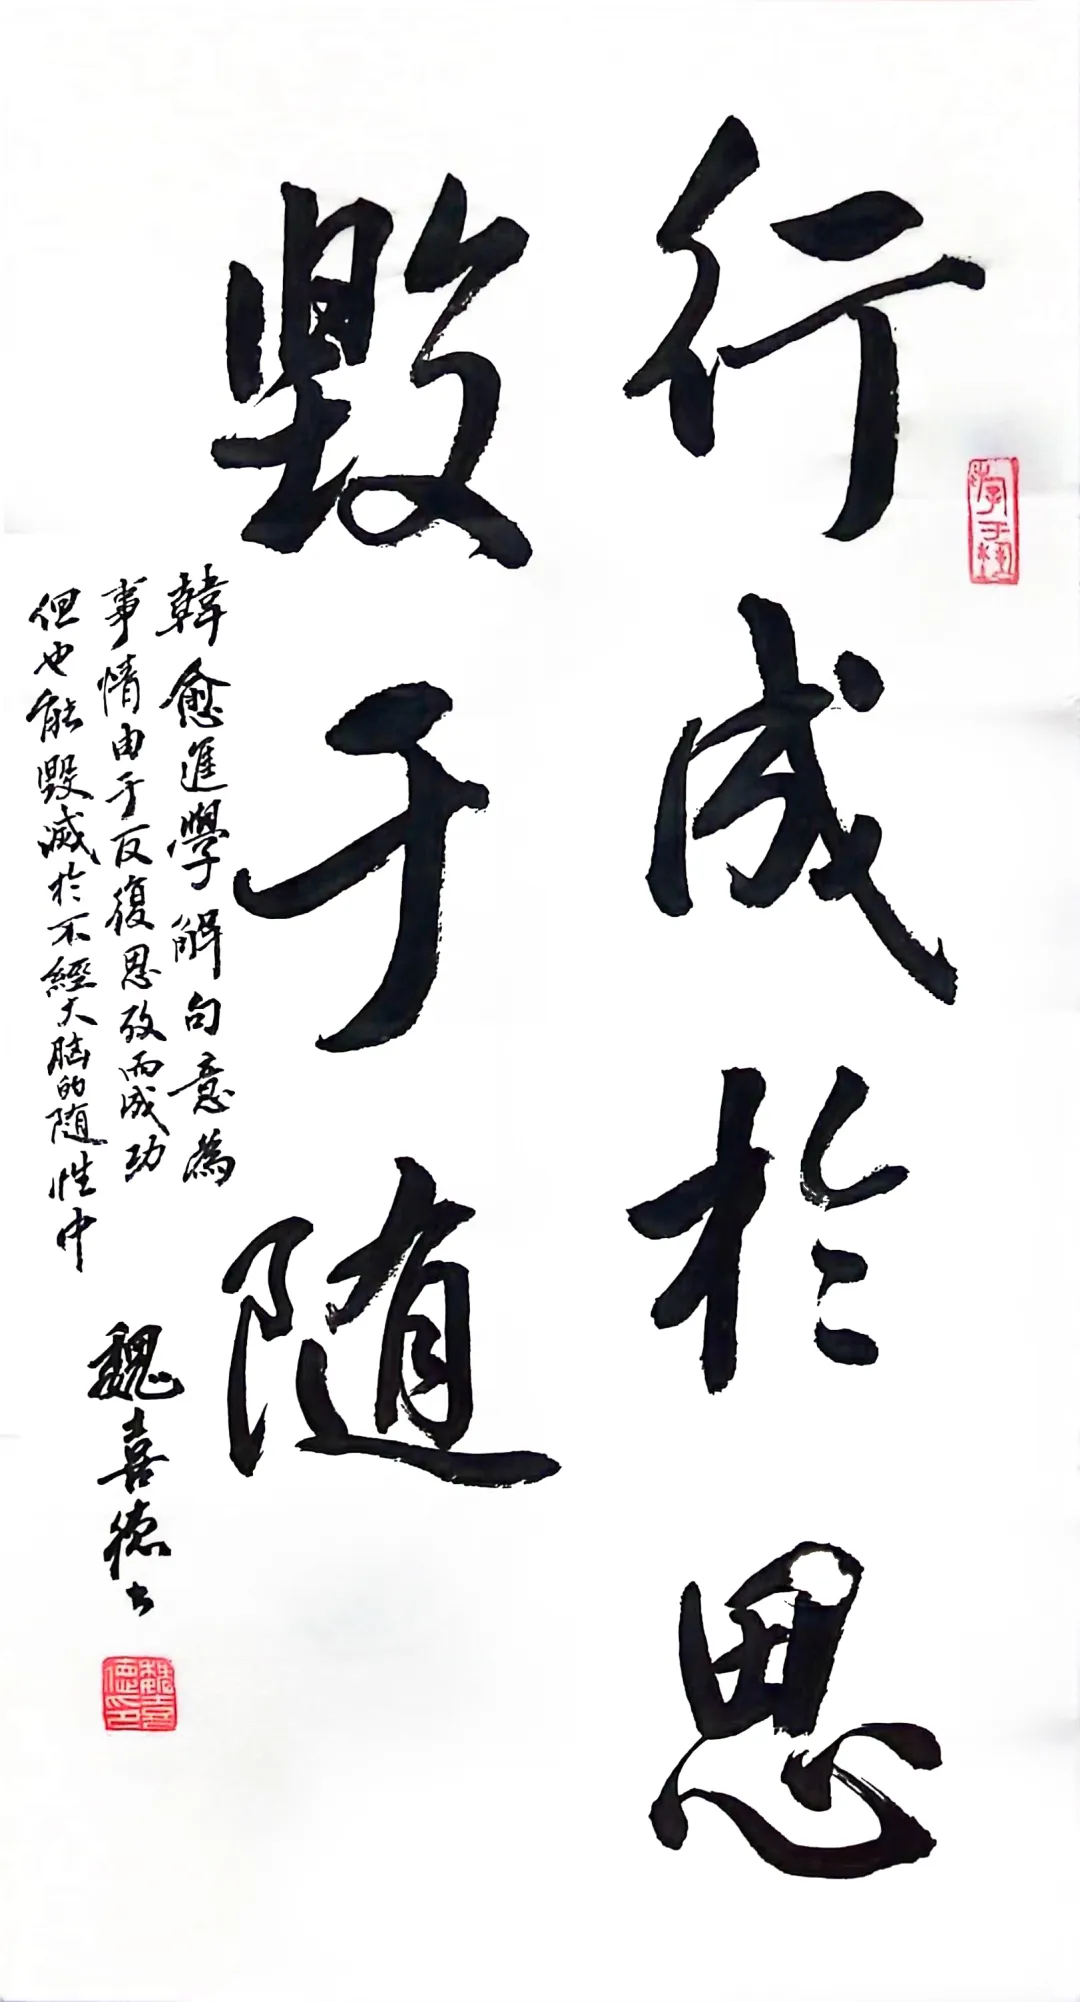 行成於思
毁于随
韓愈進學解句意為
事情由于反復思孜而成功
但也能毀滅於不經大脑的随性中
魏喜德书
魏喜德印